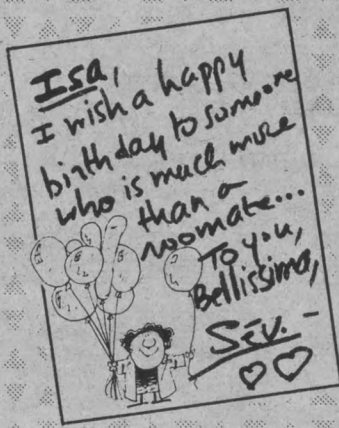 Isa,
I wish a happy
birthday to someone
who is much more
than a
roomate...
To you,
Bellissima,
Sév. -